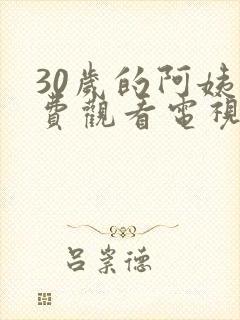 30歲的阿姨
費觀看電視
呂崇德